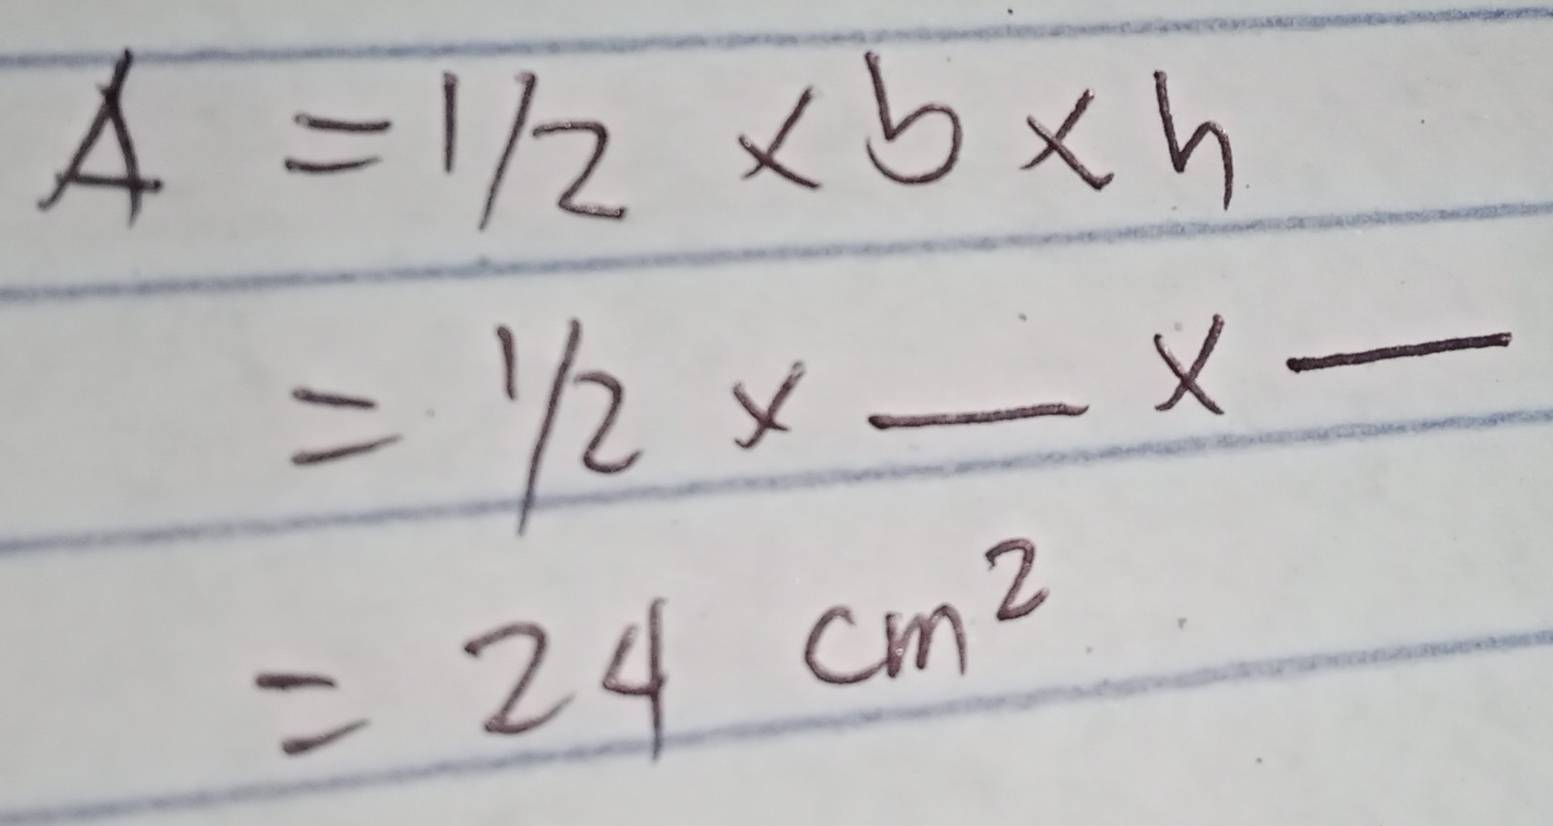 A = 1/2 × b × h
= 1/2 × __ × __
= 24 cm²